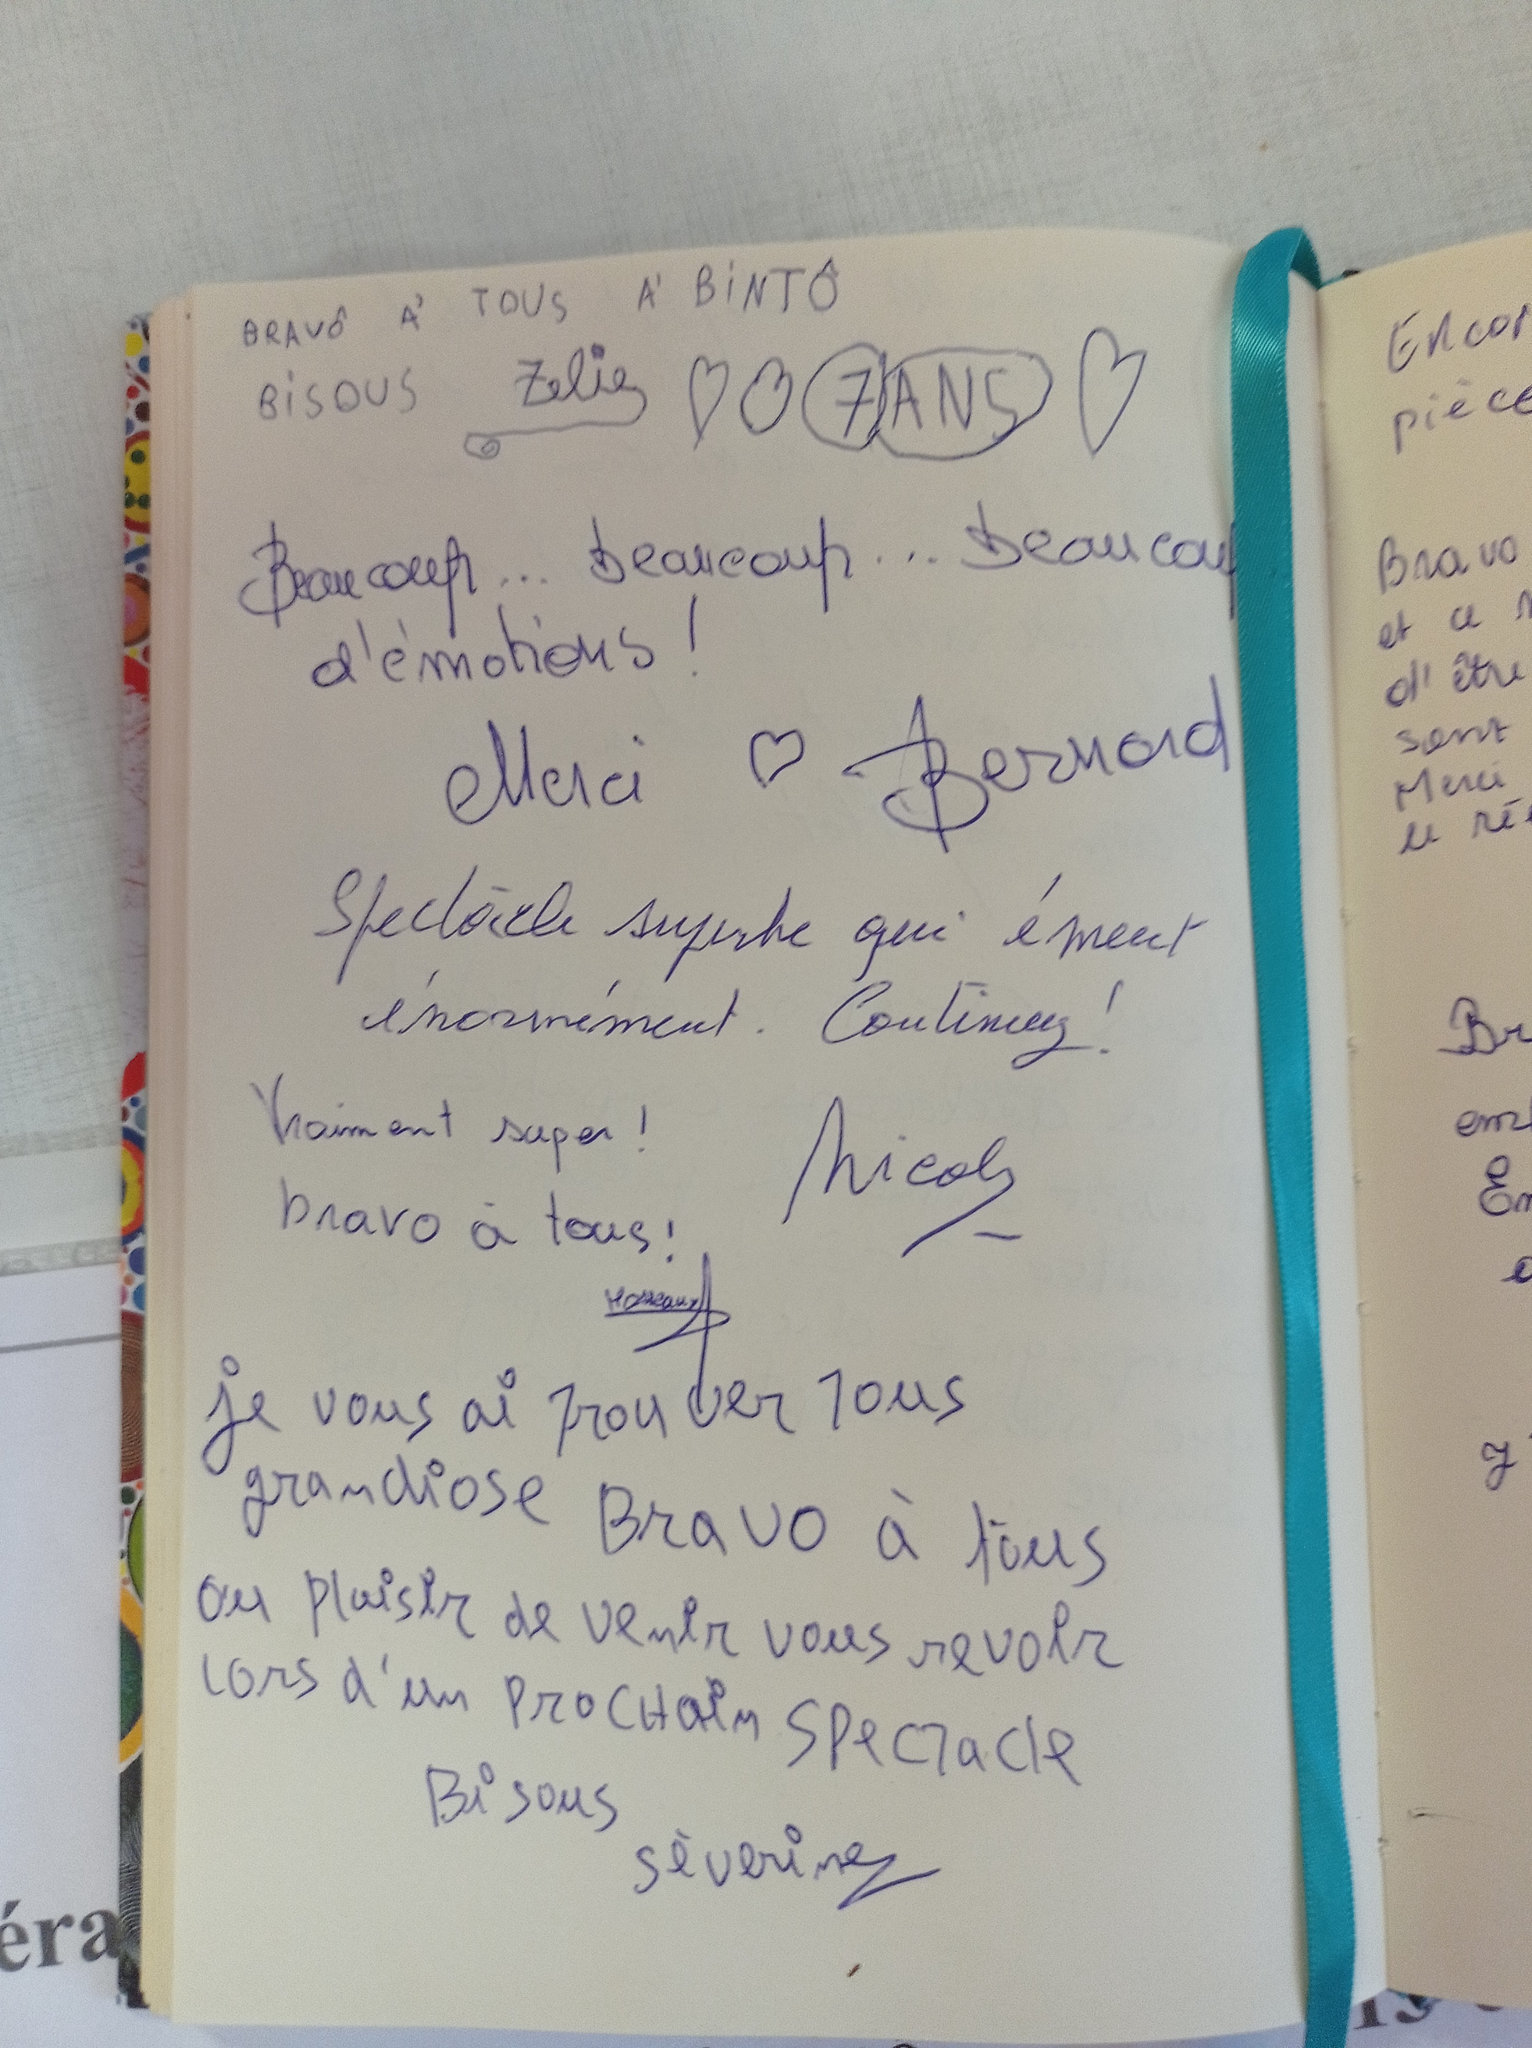 BRAVÔ À TOUS À BINTÔ
BISOUS Zelie 7 ANS
Beaucoup... beaucoup... beaucou
d'émotions !
Merci Bernard
Spectacle superbe qui émeut
énormément. Continuez !
Vraiment super !
bravo à tous !
Nicole
je vous ai trouver tous
grandiose Bravo à tous
au plaisir de venir vous revoir
lors d'un prochain spectacle
Bisous
séverine
Encor
pièce
Bravo
et ce
d'être
sont
Merci
le
Br
em
En
y'
éra